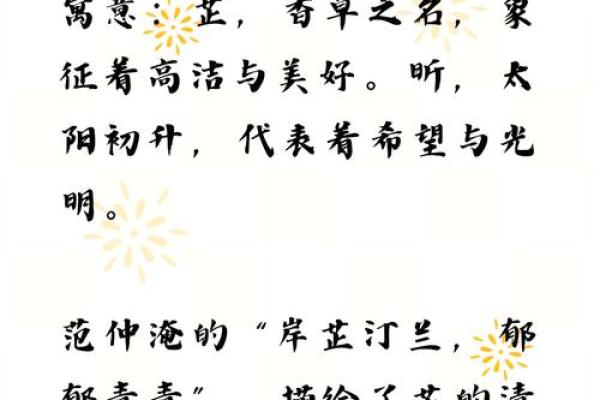 寓意：芷，香草之名，象
征着高洁与美好。昕，太
阳初升，代表着希望与光
明。
范仲淹的“岸芷汀兰，郁
郁青青”，描绘了芷的清